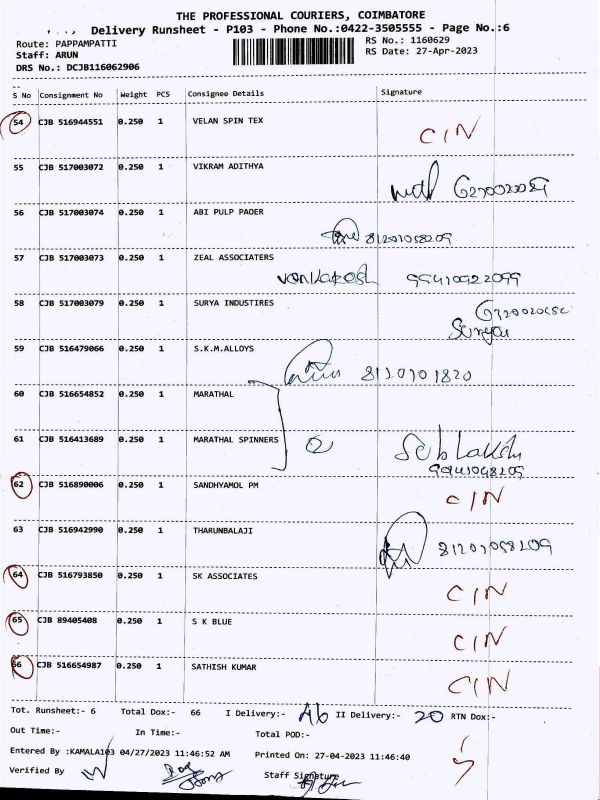 THE PROFESSIONAL COURIERS, COIMBATORE
Delivery Runsheet - P103 - Phone No.:0422-3505555 - Page No.:6
Route: PAPPAMPATTI
RS No.: 1160629
Staff: ARUN
RS Date: 27-Apr-2023
DRS No.: DCJB116062906
S No Consignment No Weight PCS Consignee Details Signature
54 CJB 516944551 0.250 1 VELAN SPIN TEX CIN
55 CJB 517003072 0.250 1 VIKRAM ADITHYA
56 CJB 517003074 0.250 1 ABI PULP PAOER
57 CJB 517003073 0.250 1 ZEAL ASSOCIATERS
99410922099
58 CJB 517003079 0.250 1 SURYA INDUSTIRES
Surya
59 CJB 516479066 0.250 1 S.K.M.ALLOYS
60 CJB 516654852 0.250 1 MARATHAL
61 CJB 516413689 0.250 1 MARATHAL SPINNERS 2
62 CJB 516890006 0.250 1 SANDHYAMOL PM CIN
63 CJB 516942990 0.250 1 THARUNBALAJI
64 CJB 516793850 0.250 1 SK ASSOCIATES CIN
65 CJB 89405408 0.250 1 S K BLUE CIN
66 CJB 516654987 0.250 1 SATHISH KUMAR CIN
Tot. Runsheet:- 6 Total Dox:- 66 I Delivery:- 46 II Delivery:- 20 RTN Dox:-
Out Time:- In Time:- Total POD:-
Entered By :KAMALA103 04/27/2023 11:46:52 AM Printed On: 27-04-2023 11:46:40
Verified By Staff Signature